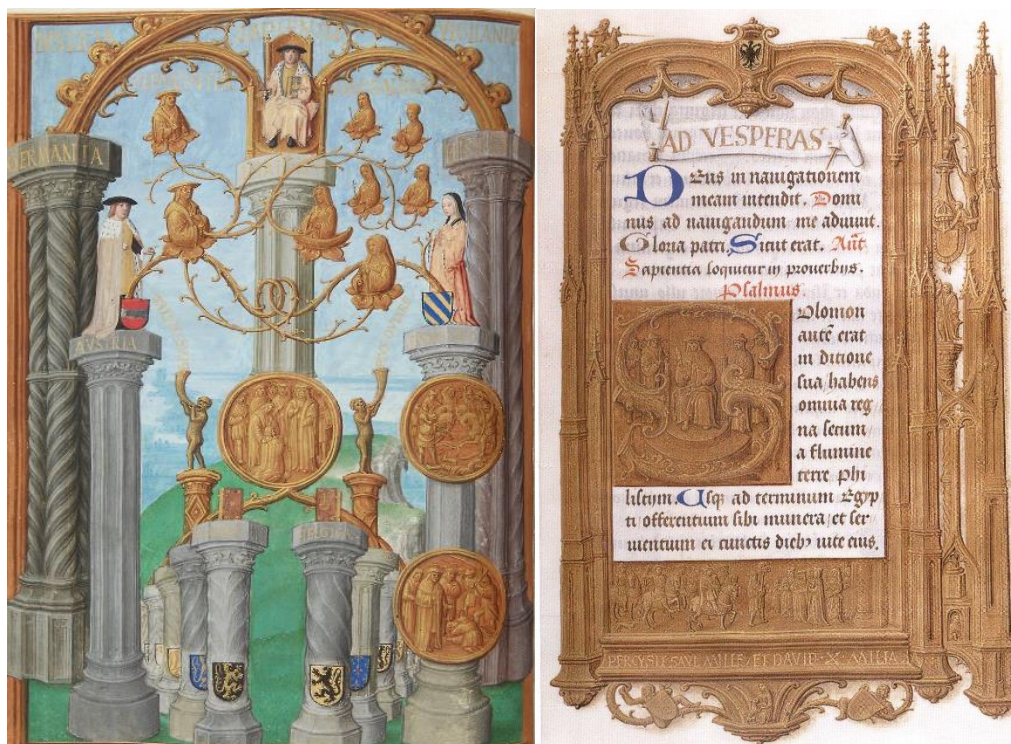 GERMANIA
AVSTRIA
AD VESPERAS
Deus in nauigationem
meam intendit. Domi
nus ad nauigandum me adiuuit.
Gloria patri. Sicut erat. Añt
Sapientia loquitur in prouerbijs.
Psalmus.
Solomon
autē erat
in ditione
sua habens
omnia reg
na secum
a flumine
terre phi
listijm. Usq ad terminum Egyp
ti offerentium sibi munera, et ser
uientium ei cunctis diebꝰ uite eius.
PERCVSIT SAVL MILLE ET DAVID X MILIA